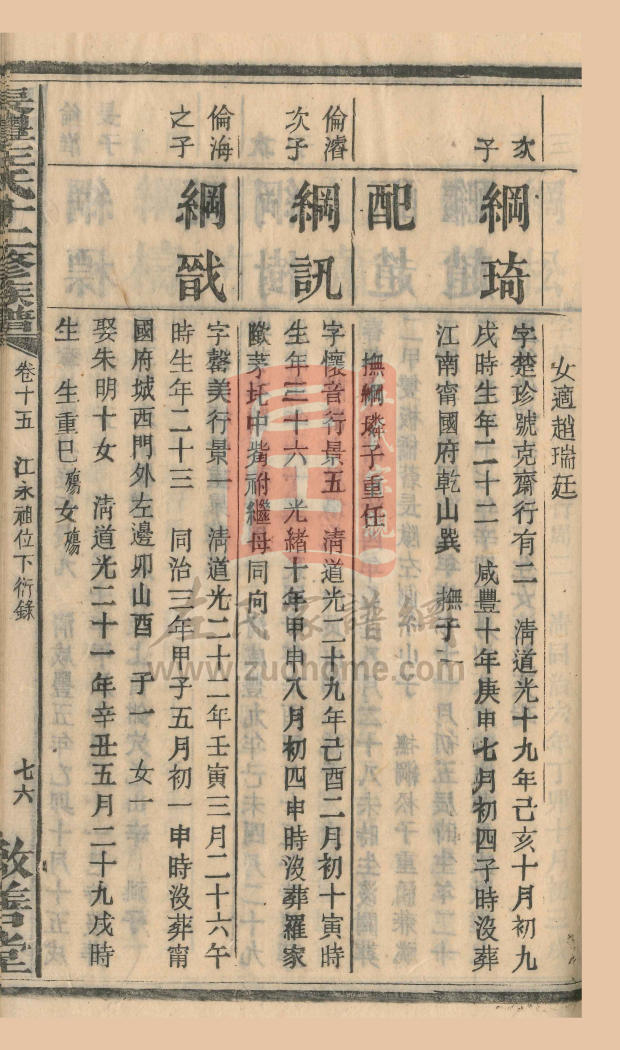 女適趙瑞廷
次子
綱琦
字楚珍號克齋行有二 淸道光十九年己亥十月初九
戌時生年二十二 咸豐十年庚申七月初四子時沒葬
江南甯國府乾山巽 撫子二
配
撫綱璘子重任
倫濬次子
綱訊
字懷音行景五 淸道光二十九年己酉二月初十寅時
生年三十六 光緒十年甲申八月初四申時沒葬羅家
歐茅圫中嘴祔繼母同向
倫海之子
綱戩
字罄美行景一 淸道光二十二年壬寅三月二十六午
時生年二十三 同治三年甲子五月初一申時沒葬甯
國府城西門外左邊卯山酉 子一 女一
娶朱明十女 淸道光二十一年辛丑五月二十九戌時
生 生重巳殤女殤
王氏十二修族譜
卷十五 江永祖位下衍錄
七六
敦善堂
www.zuohome.com